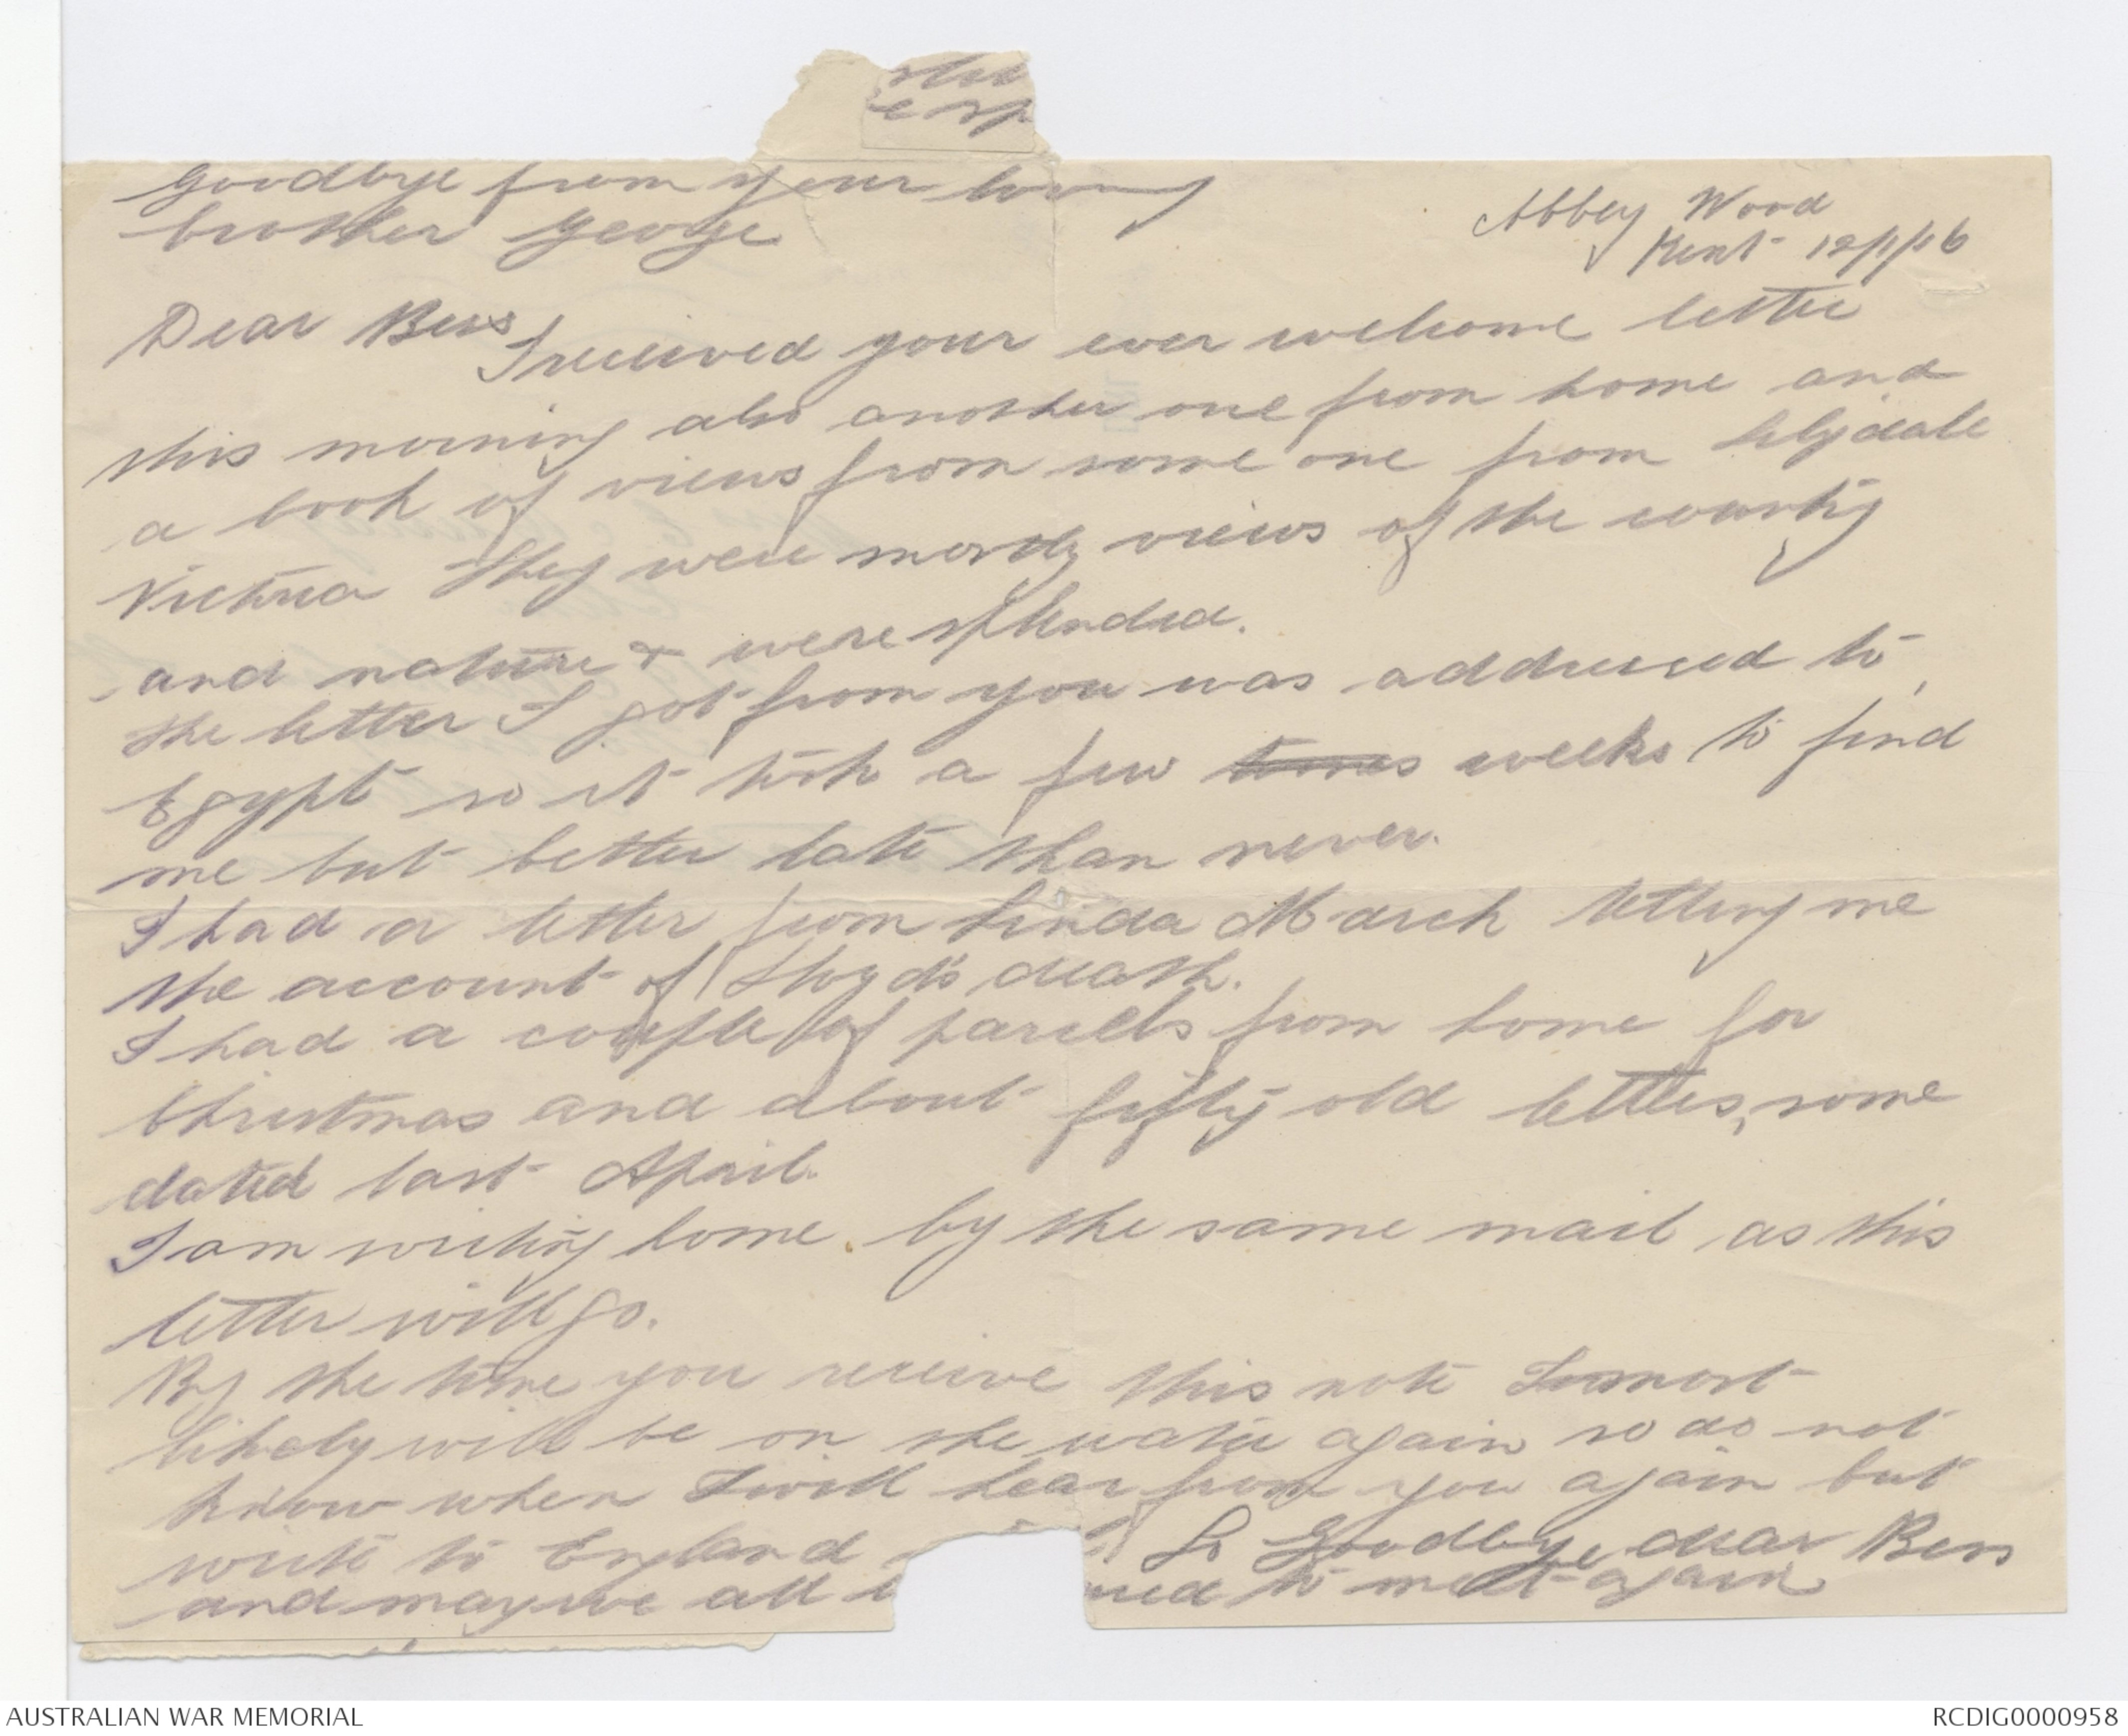 goodbye from your loving
brother George
Abbey Wood
Kent 12/1/16
Dear Bess
I received your ever welcome letter
this morning also another one from home and
a book of views from some one from Lilydale
Victoria They were mostly views of the country
and nature & were splendid.
the letter I got from you was addressed to,
Egypt so it took a few times weeks to find
me but better late than never.
I had a letter from Linda March telling me
the account of Lloyd's death.
I had a couple of parcels from home for
Christmas and about fifty old letters, some
dated last April.
I am writing home by the same mail as this
letter will go.
By the time you receive this note I most
likely will be on the water again so do not
know when I will hear from you again but
write to England So Goodbye dear Bess
and may we all to meet again
AUSTRALIAN WAR MEMORIAL
RCDIG0000958